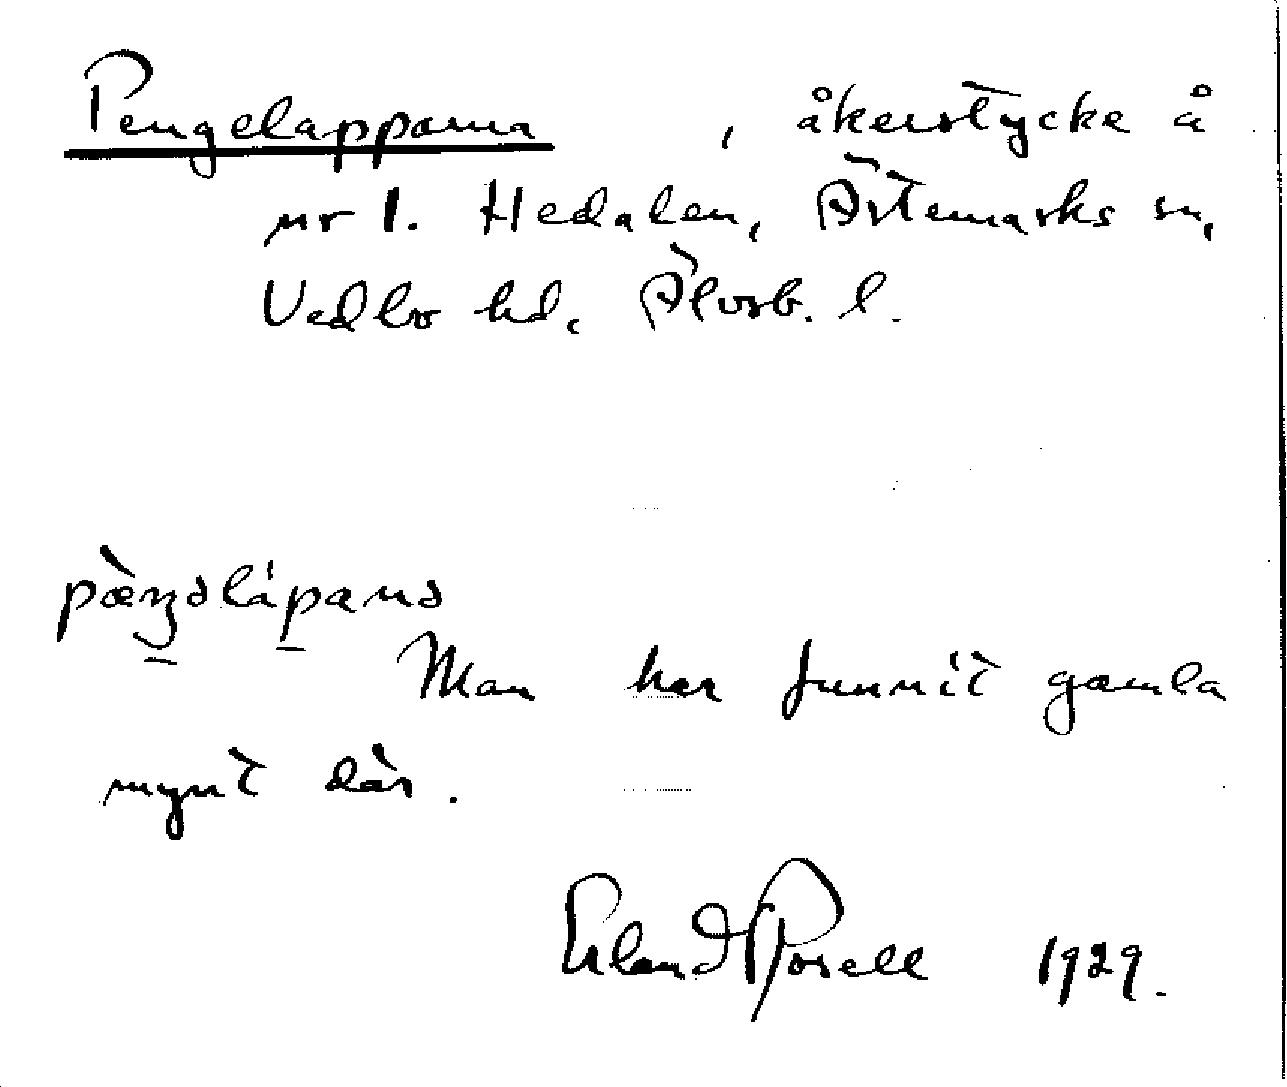 Pengelapparna, åkerstycke å
nr 1. Hedalen, Ärtemarks sn,
Vedbo hd, Älvsb. l.
pæ̀ŋəlápanə
Man har funnit gamla
mynt där.
Erland Rosell 1929.